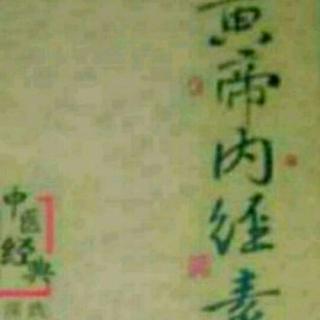 黄帝内经素
中医
经典